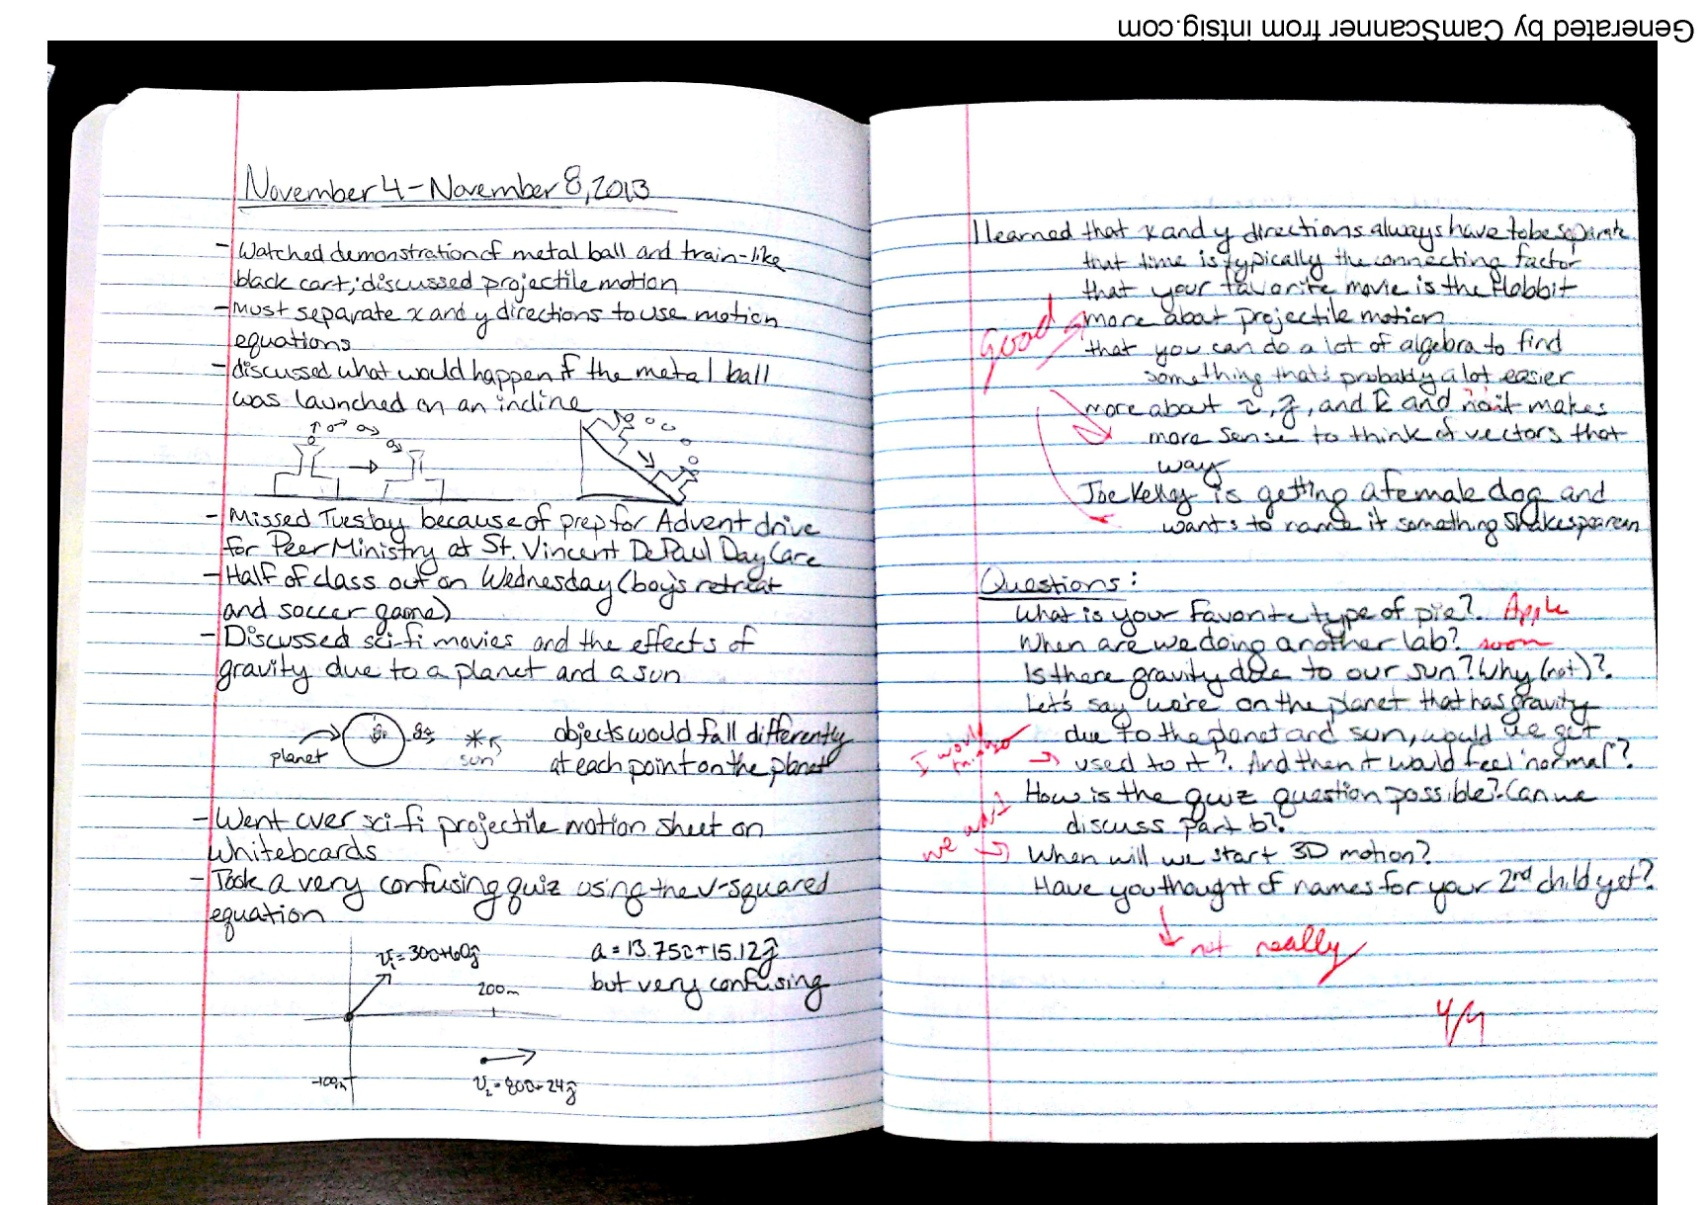 Generated by CamScanner from intsig.com
November 4 - November 8, 2013
- Watched demonstration of metal ball and train-like
black cart; discussed projectile motion
- Must separate x and y directions to use motion
equations
- discussed what would happen if the metal ball
was launched on an incline
- Missed Tuesday because of prep for Advent drive
for Peer Ministry at St. Vincent De Paul Day Care
- Half of class out on Wednesday (boy's retreat
and soccer game)
- Discussed sci-fi movies and the effects of
gravity due to a planet and a sun
planet
sun
objects would fall differently
at each point on the planet
- Went over sci-fi projectile motion sheet on
whiteboards
- Took a very confusing quiz using the v-squared
equation
v₁ = 30î + 60ĵ
200m
a = 13.75î + 15.12ĵ
but very confusing
-100m
v₂ = 80î + 24ĵ
I learned that x and y directions always have to be separate
that time is typically the connecting factor
that your favorite movie is the Hobbit
Good
more about projectile motion
that you can do a lot of algebra to find
something that's probably a lot easier
more about î, ĵ, and k̂ and it makes
more sense to think of vectors that
way
Joe Kelley is getting a female dog and
wants to name it something Shakesperean
Questions:
What is your favorite type of pie? Apple
When are we doing another lab? soon
Is there gravity due to our sun? Why (not)?
Let's say we're on the planet that has gravity
due to the planet and sun, would we get
used to it? And then it would feel "normal"?
I would
How is the quiz question possible? Can we
discuss part b?
we
When will we start 3D motion?
Have you thought of names for your 2nd child yet?
not really
4/4